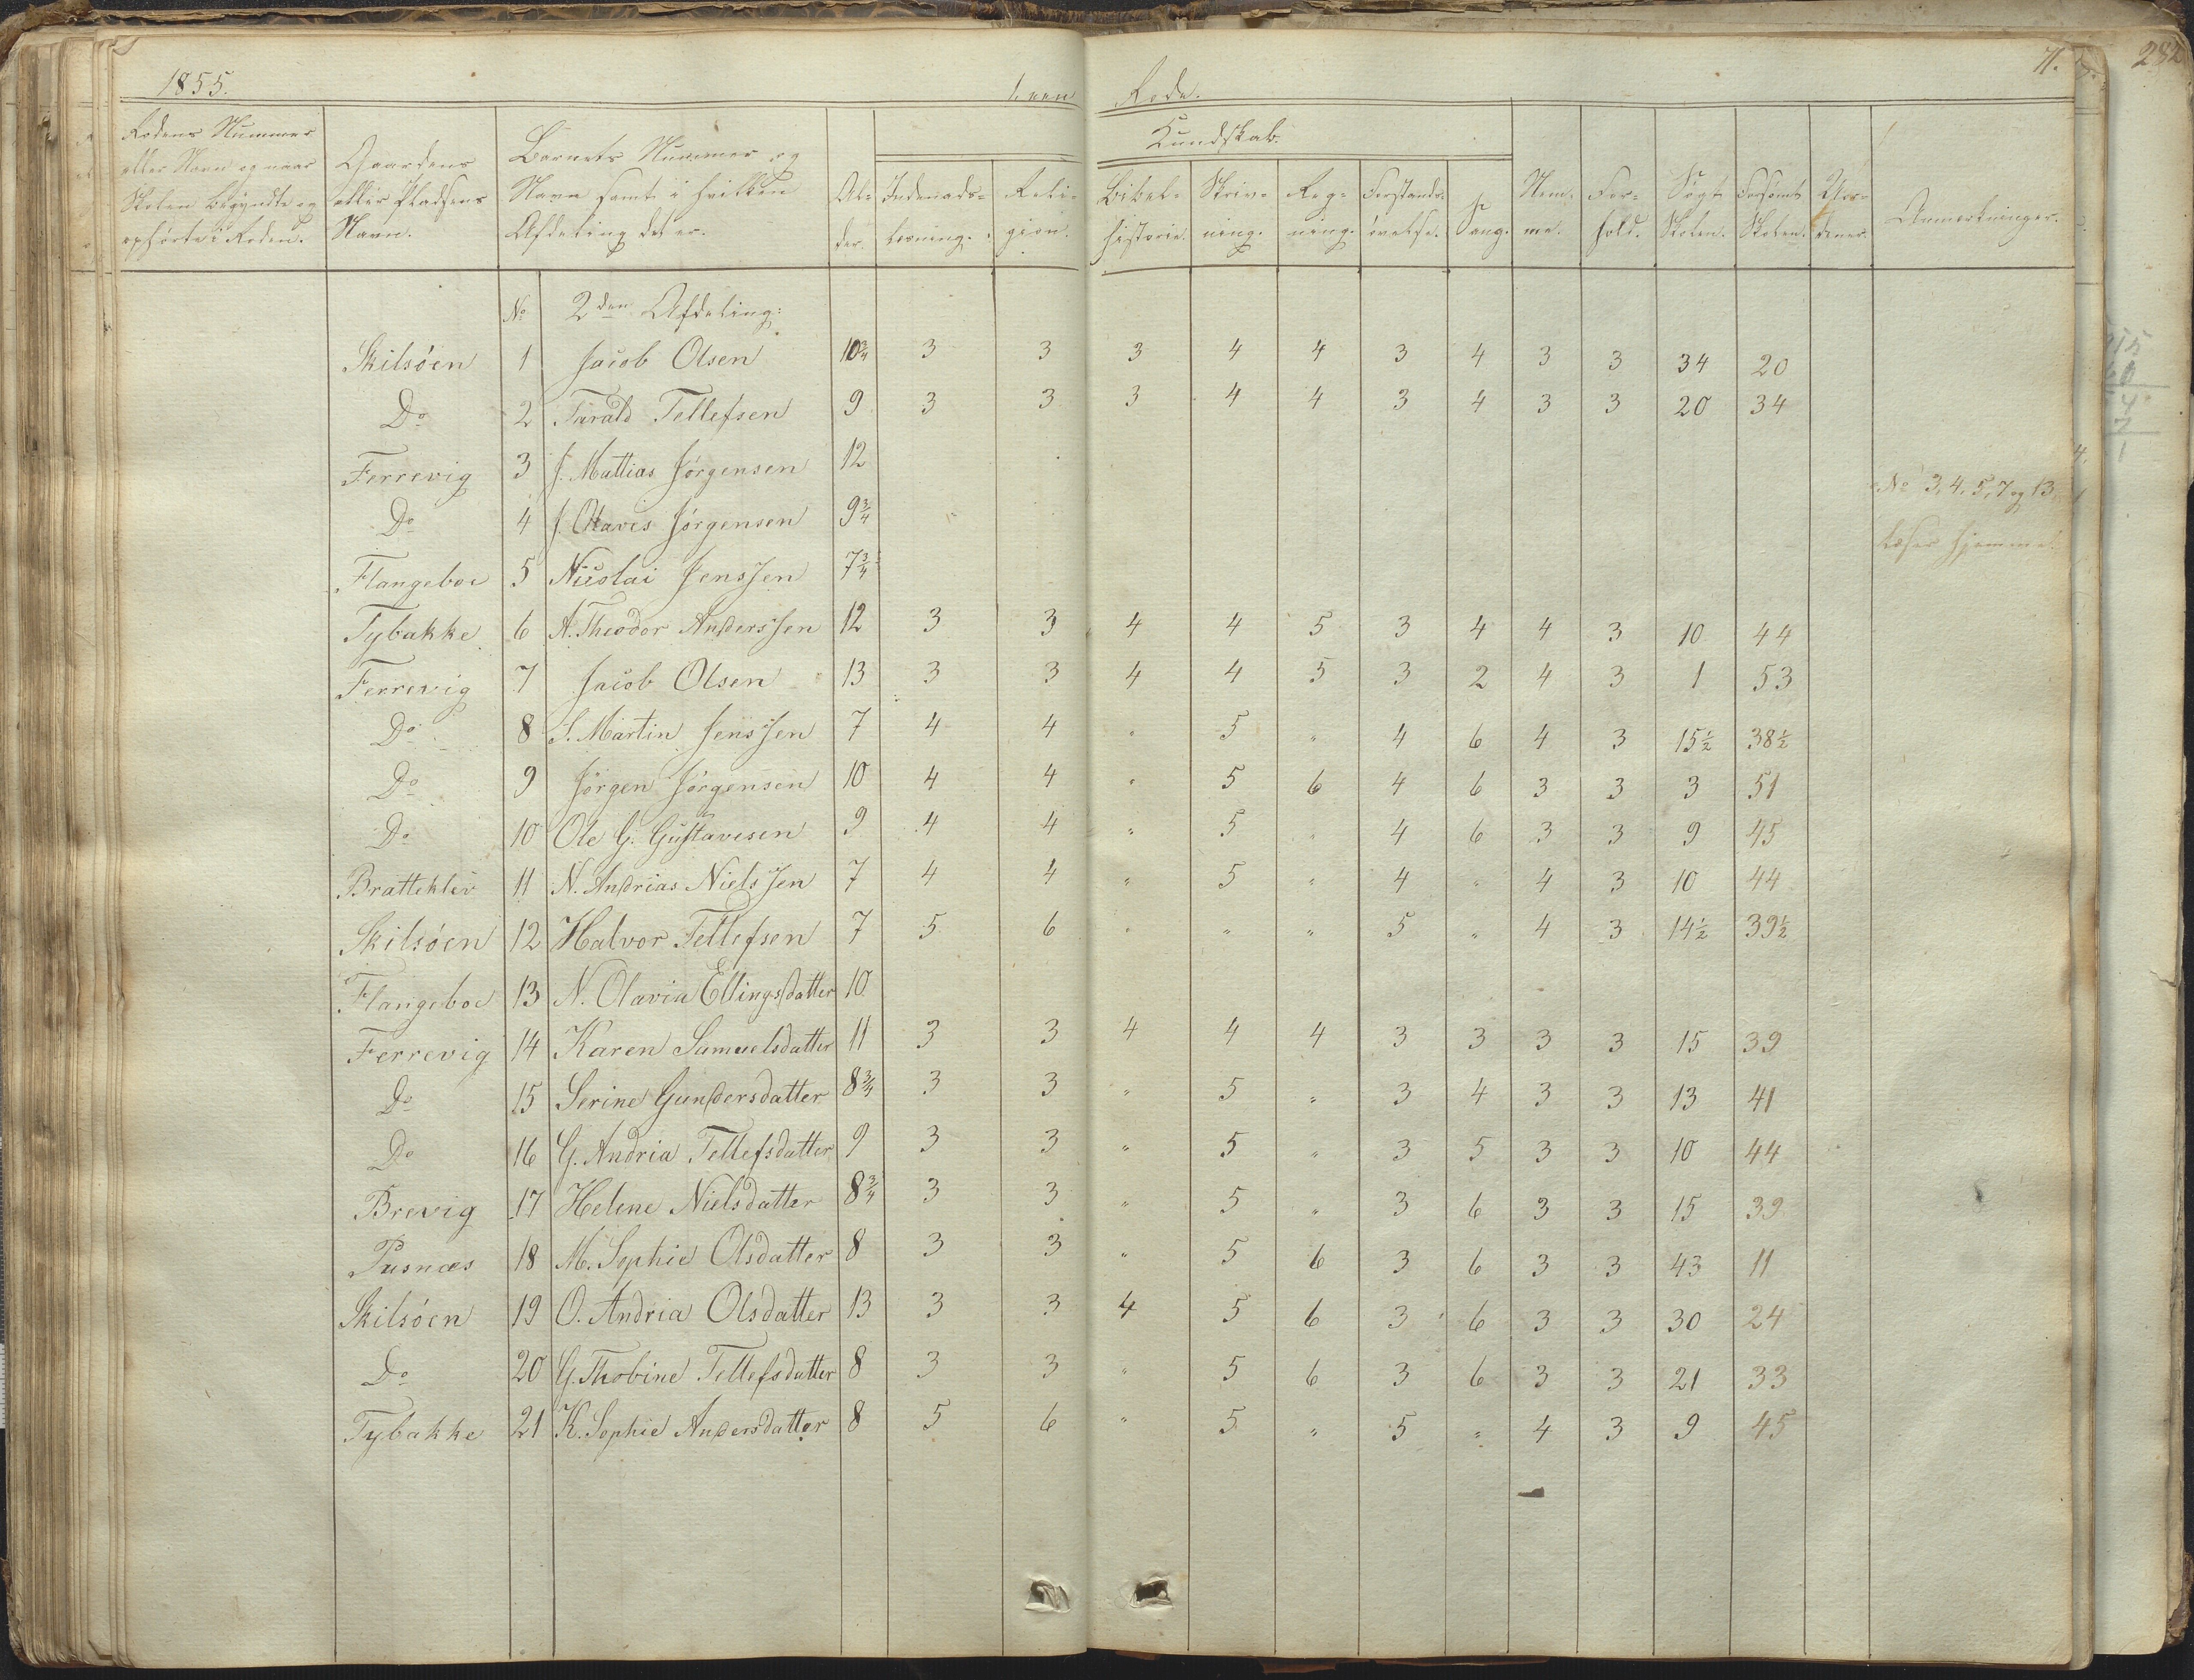 1855.
Rode.
71.
232
Rodens Nummer eller Navn og naar Skolen begyndte og ophørte i Roden.
Gaardens eller Pladsens Navn.
Barnets Nummer og Navn samt i hvilken Afdeling det er.
Al- der.
Indenads- læsning.
Reli- gion.
Kundskab.
Bibel- historie.
Skriv- ning.
Reg- ning.
Forstands- øvelse.
Sang.
Nem- me.
For- hold.
Søgt Skolen.
Forsømt Skolen.
Anmærkninger.
No 2den Afdeling:
Skilsöen 1 Jacob Olsen 10¾ 3 3 3 4 4 3 4 3 3 34 20
Do 2 Tarald Tellefsen 9 3 3 3 4 4 3 4 3 3 20 34
Ferrevig 3 J. Mattias Jörgensen 12
Do 4 J. Olaves Jörgensen 9¾
No 3, 4, 5, 7 og 13
læser hjemme.
Flangeboe 5 Nicolai Jenssen 7¾
Tybakke 6 A. Theodor Anderssen 12 3 3 4 4 5 3 4 4 3 10 44
Ferrevig 7 Jacob Olsen 13 3 3 4 4 5 3 2 4 3 1 53
Do 8 S. Martin Jenssen 7 4 4 " 5 " 4 6 4 3 15½ 38½
Do 9 Jörgen Jörgensen 10 4 4 " 5 6 4 6 3 3 3 51
Do 10 Ole G. Gustavesen 9 4 4 " 5 " 4 6 3 3 9 45
Bratteklev 11 N. Andrias Nielssen 7 4 4 " 5 " 4 " 4 3 10 44
Skilsöen 12 Halvor Tellefsen 7 5 6 " " " 5 " 4 3 14½ 39½
Flangeboe 13 N. Olavia Ellingsdatter 10
Ferrevig 14 Karen Samuelsdatter 11 3 3 4 4 4 3 3 3 3 15 39
Do 15 Serine Gundersdatter 8¾ 3 3 " 5 " 3 4 3 3 13 41
Do 16 G. Andria Tellefsdatter 9 3 3 " 5 " 3 5 3 3 10 44
Brevig 17 Helene Nielsdatter 8¾ 3 3 " 5 " 3 6 3 3 15 39
Pusnæs 18 M. Sophie Olsdatter 8 3 3 " 5 6 3 6 3 3 43 11
Skilsöen 19 O. Andria Olsdatter 13 3 3 4 5 6 3 6 3 3 30 24
Do 20 G. Thobine Tellefsdatter 8 3 3 " 5 6 3 6 3 3 21 33
Tybakke 21 K. Sophie Andersdatter 8 5 6 " 5 " 5 " 4 3 9 45